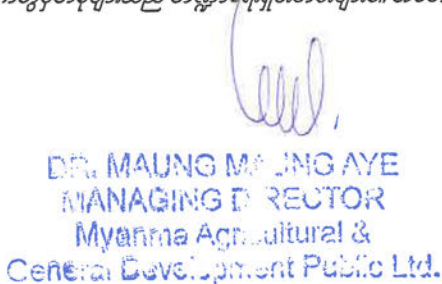 DR. MAUNG MAUNG AYE
MANAGING DIRECTOR
Myanma Agricultural &
General Development Public Ltd.